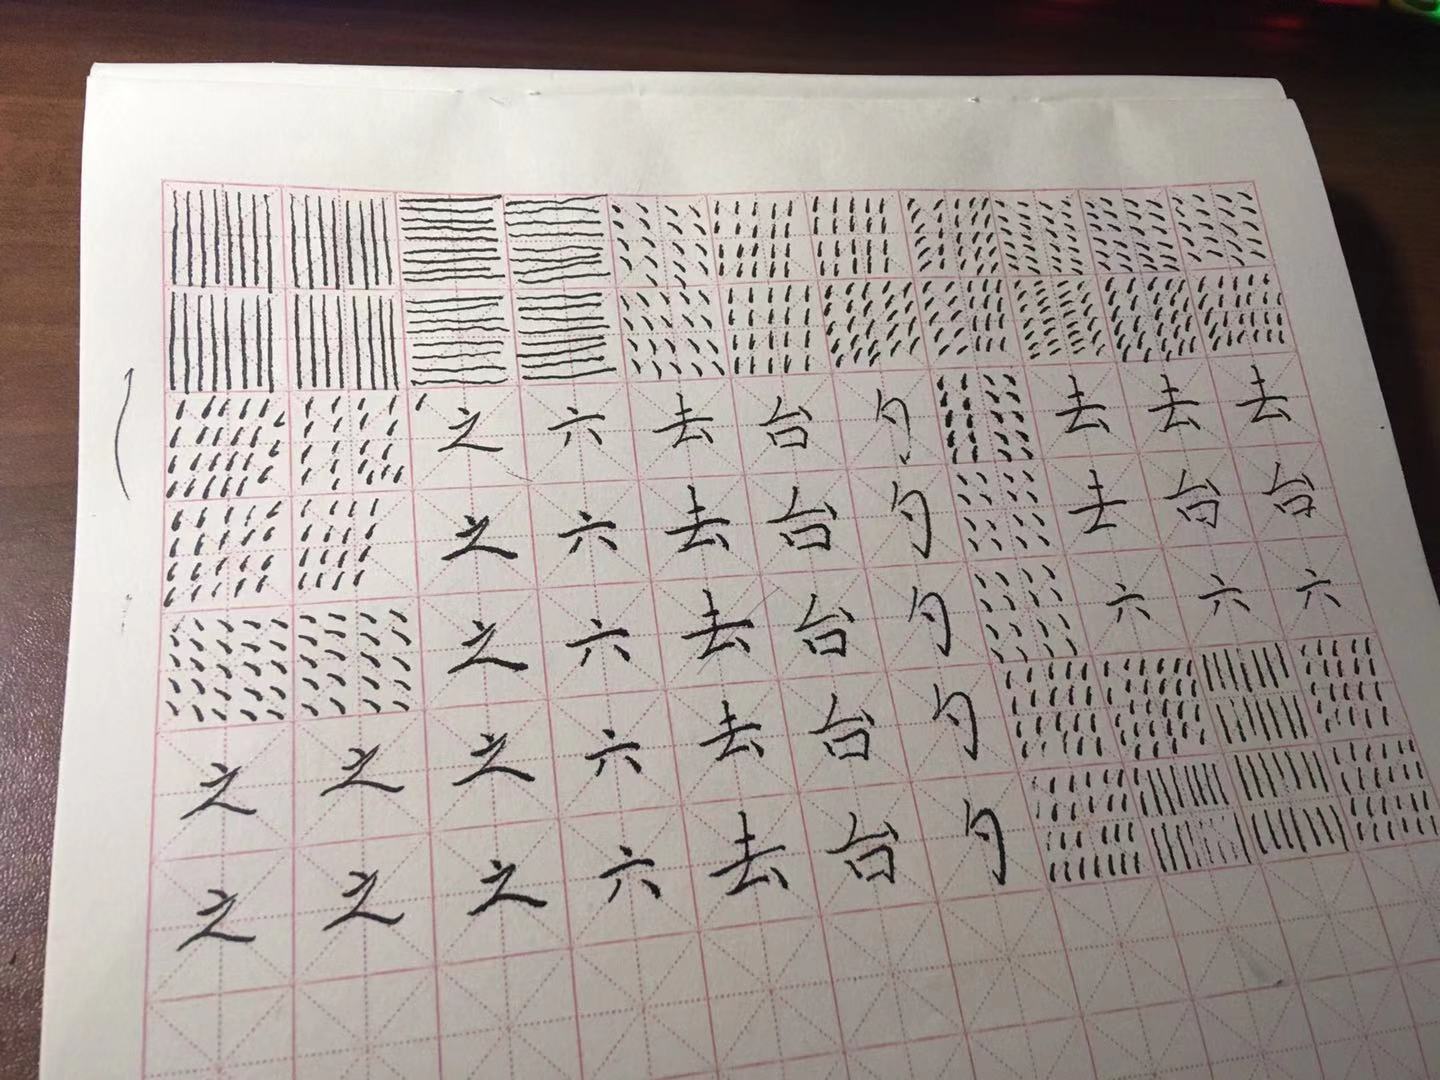 之 六 去 台 勺 去 去 去
之 六 去 台 勺 去 台 台
之 六 去 台 勺 六 六 六
之 之 之 六 去 台 勺
之 之 之 六 去 台 勺